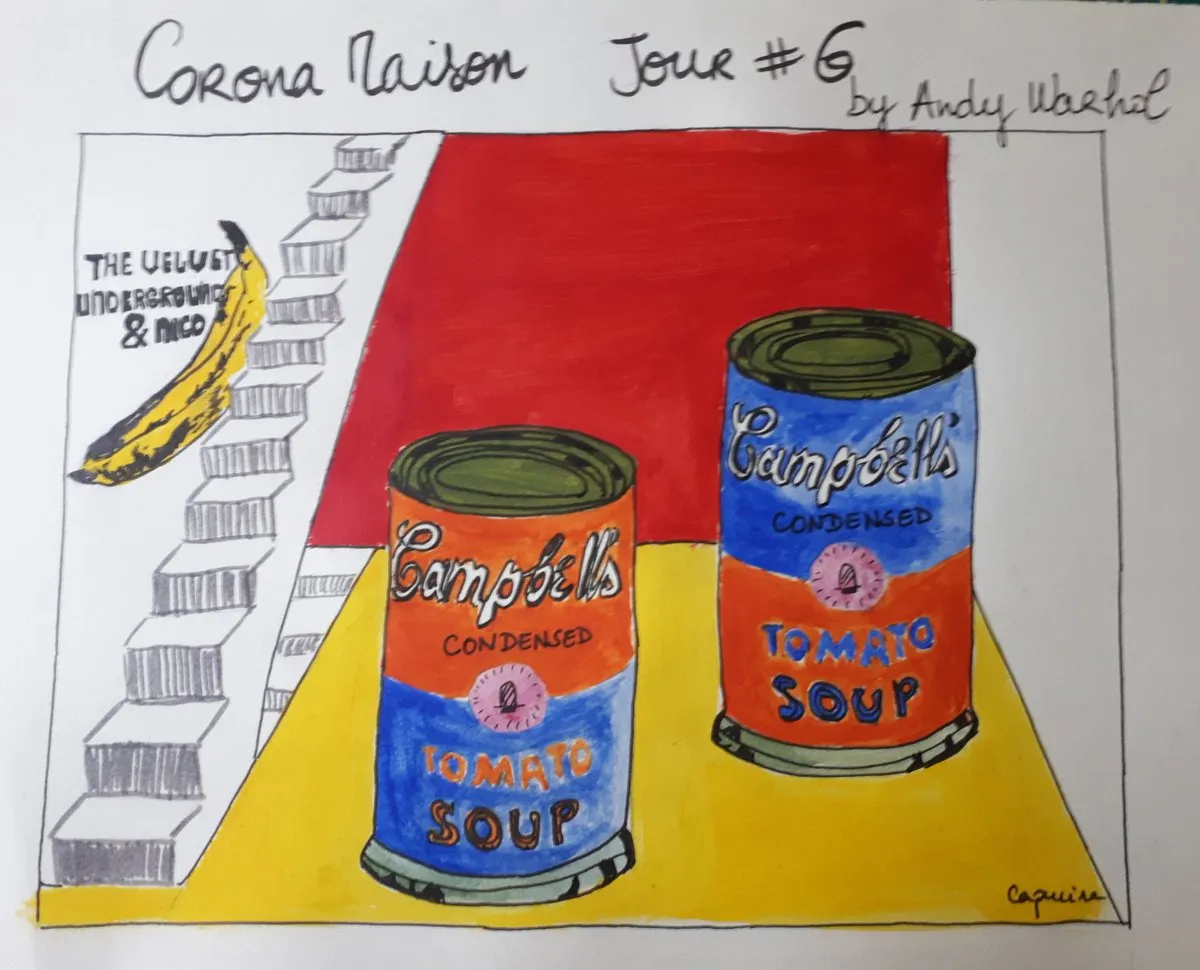 Corona Maison Jour # 6
by Andy Warhol
THE VELVET
UNDERGROUND
& NICO
Campbell's
CONDENSED
TOMATO
SOUP
Campbell's
CONDENSED
TOMATO
SOUP